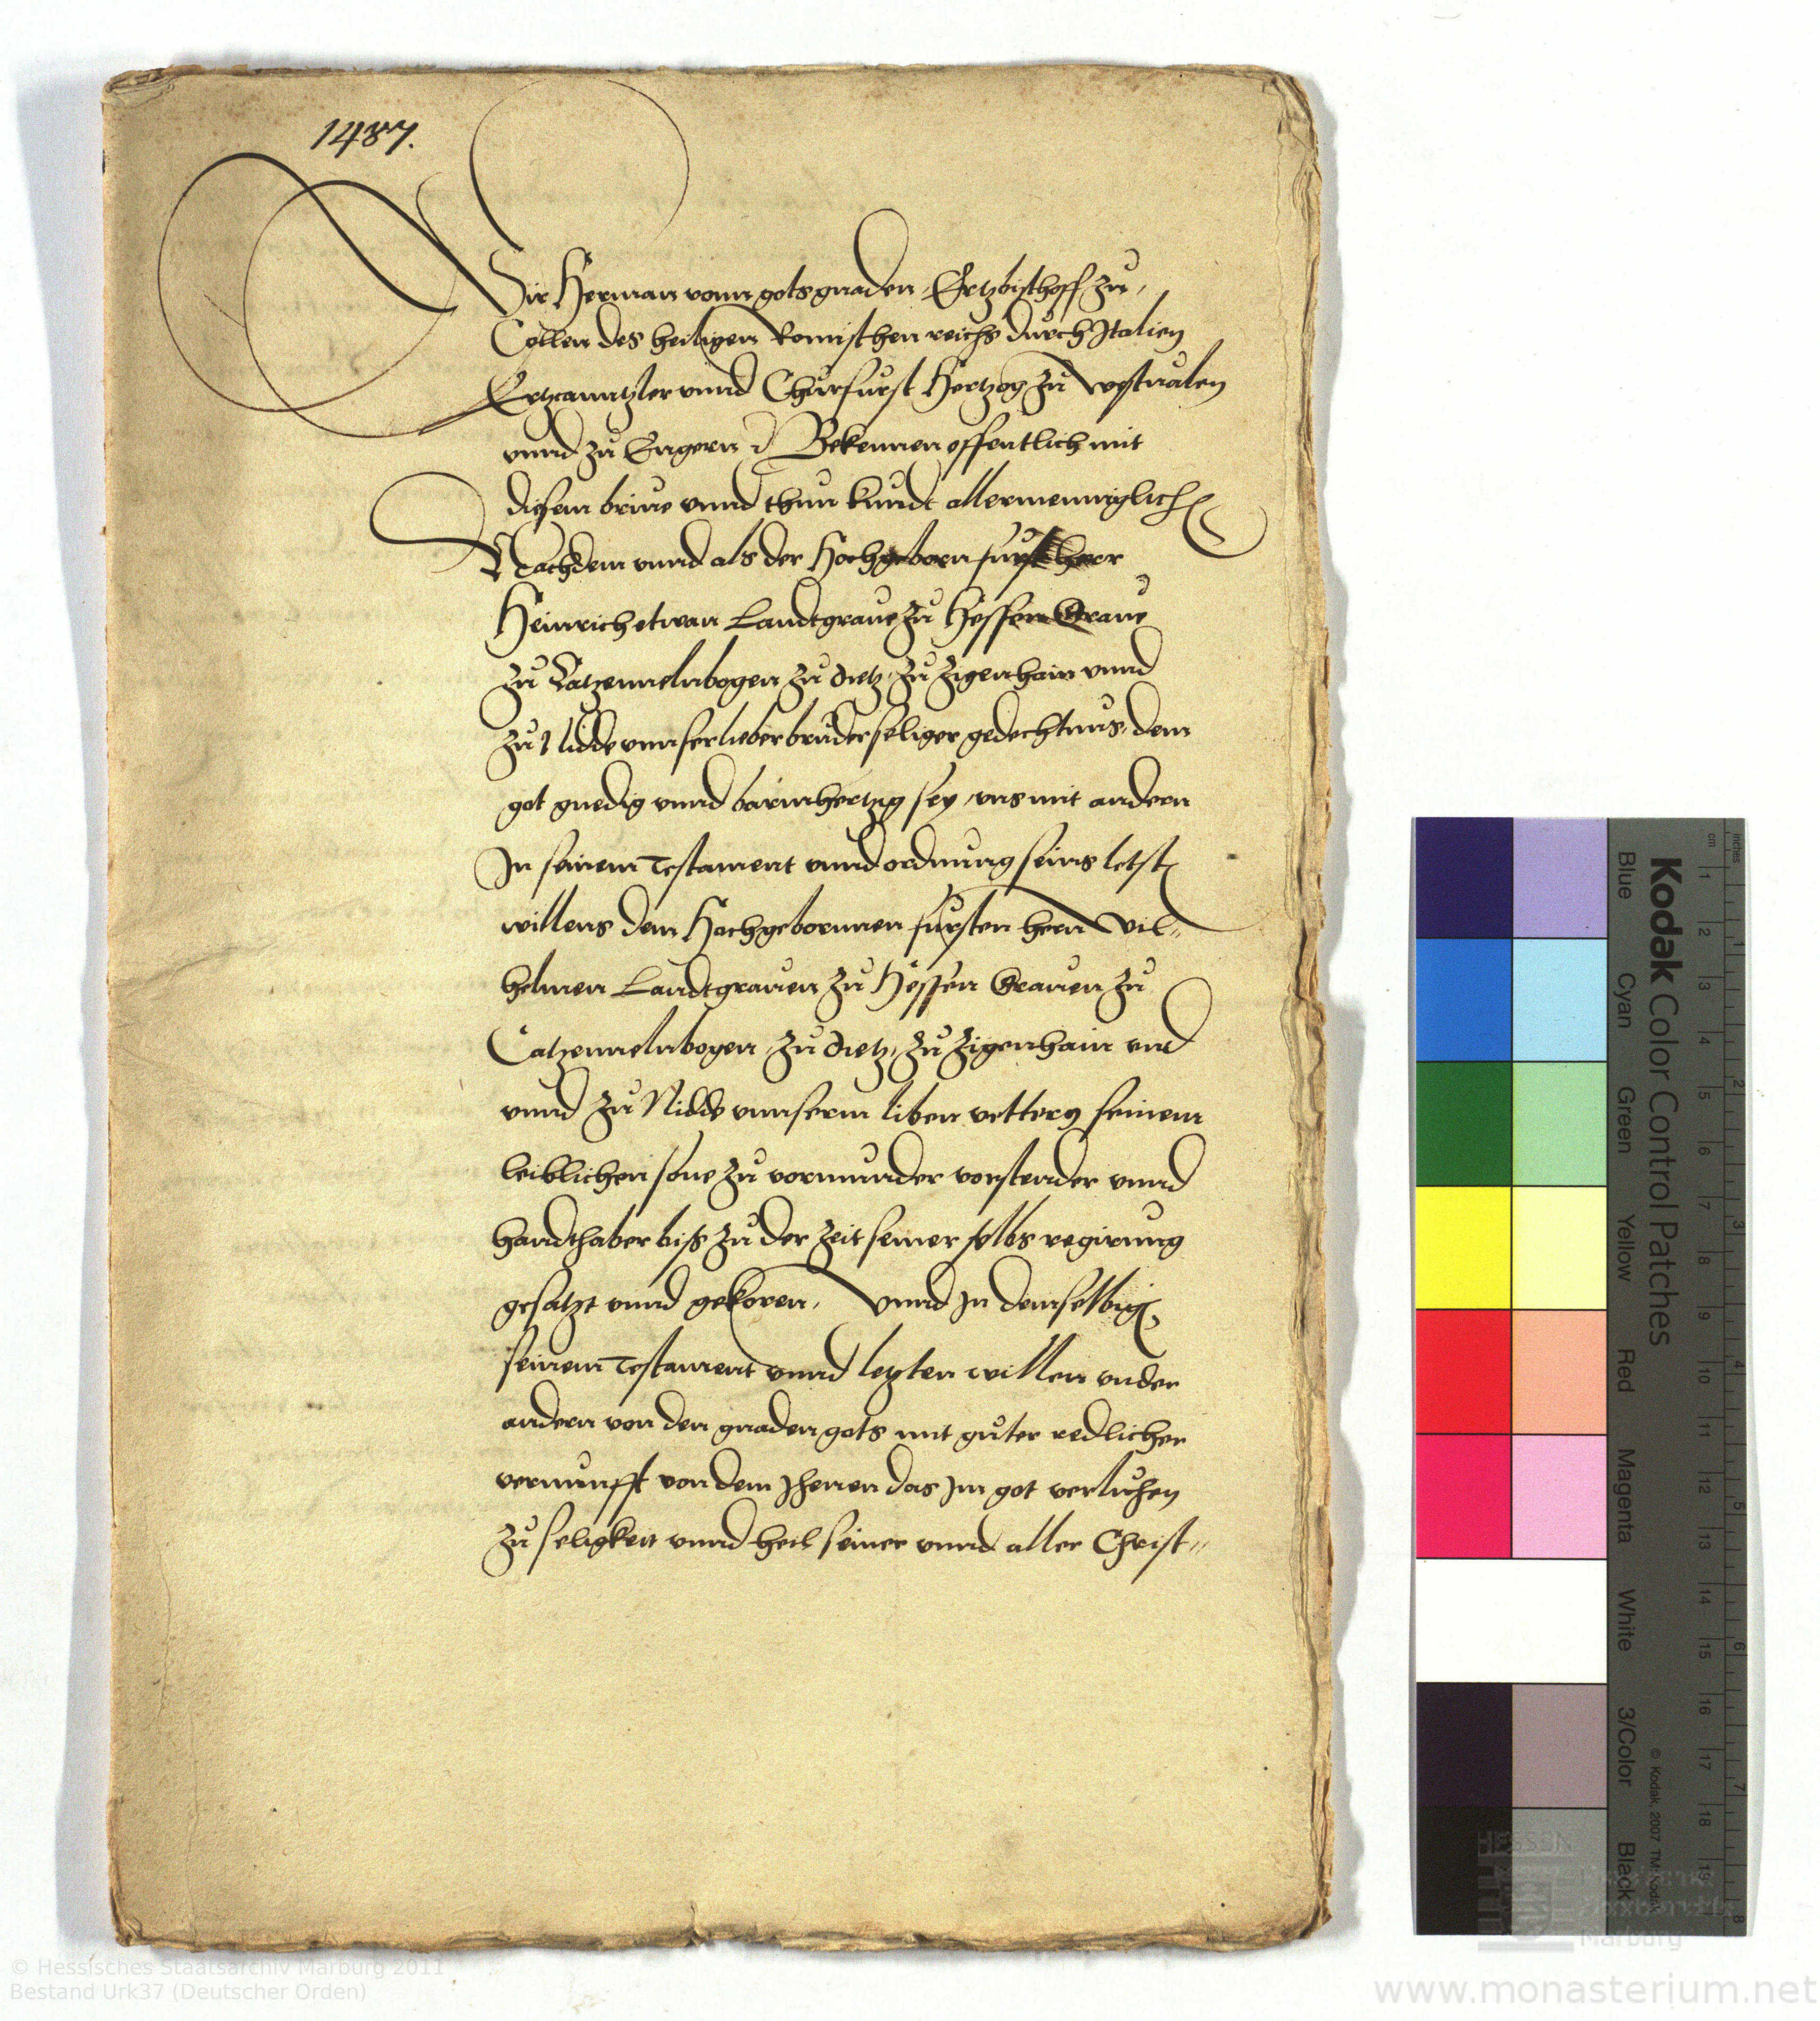 1487.
Wir Herman vonn gots gnaden, Ertzbischoff zu,
Collen des heiligen Romischen reichs durch Italien
Ertzcanntzler vnnd Churfurst Hertzog zu westualen
vnnd zu Engern Bekennen offentlich mit
diesem briue vnnd thun kundt allermenniglich
Nachdem vnnd als der Hochgeborn furst herr
Heinrich etwan Landtgraue zu Hessen Graue
zu Catzennelnbogen zu dietz, zu Zigenhain vnnd
zu Nidde vnnser lieber bruder seliger gedechtnus, dem
got gnedig vnnd barmhertzig sey, vns mit andern
In seinem Testament vnnd ordnung seins letst
willens dem Hochgebornnen fursten hern Wil„
helmen Landtgrauen zu Hessen Grauen zu
Catzennelnbogen, zu dietz, zu Zigenhain vnd
vnnd zu Nidde vnnserm liben vettern seinem
leiblichen sone zu vormunder vorstender vnnd
handthaber biß zu der zeit seiner selbs regirung
gesatzt vnnd gekoren, Vnnd In demselbig,
seinem Testament vnnd letzten willen vnder
andern von den gnaden gots mit guter redlicher
vernunfft von dem Jhenen das Im got verluhen
zu seligkeit vnnd heil seiner vnnd aller Christ„
Kodak Color Control Patches
Blue Cyan Green Yellow Red Magenta White 3/Color Black
inches
cm
1 2 3 4 5 6 7 8 9 10 11 12 13 14 15 16 17 18 19
1 2 3 4 5 6 7 8
© Kodak, 2007 TM: Kodak
HESSEN
Hessisches
Staatsarchiv
Marburg
© Hessisches Staatsarchiv Marburg 2011
Bestand Urk37 (Deutscher Orden)
www.monasterium.net